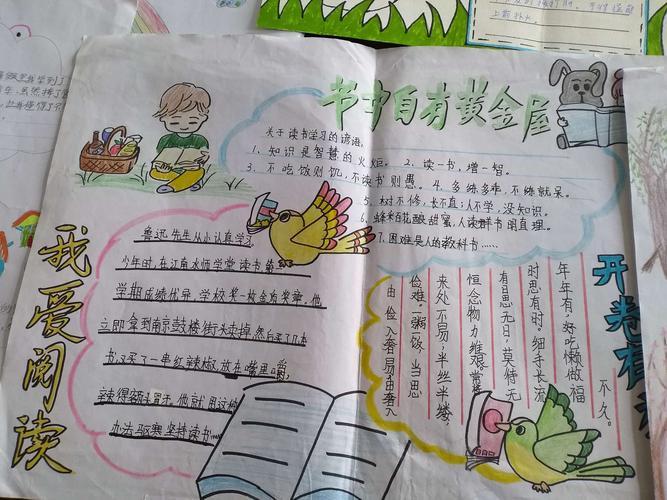 书中自有黄金屋
关于读书学习的谚语。
1、知识是智慧的火炬。 2、读一书,增一智。
3、不吃饭则饥,不读书则愚。 4、多练多乖,不练就呆。
5、树不修,长不直;人不学,没知识。
6、蜂采百花酿甜蜜,人读群书明真理。
7、困难是人的教科书……
我爱阅读
鲁迅先生从小认真学习
少年时,在江南水师学堂读书第一
学期成绩优异,学校奖一枚金质奖章,他
立即拿到南京鼓楼街头卖掉,然后买了几本
书,又买了一串红辣椒,放在嘴里嚼,
辣得额头冒汗,他就用这种
办法驱寒坚持读书……
开卷有
由俭入奢易由奢入
俭难。一粥一饭,当思
来处不易;半丝半缕
恒念物力维艰。常将
有日思无日,莫待无
时思有时。细手长流
年年有;好吃懒做福
不久。